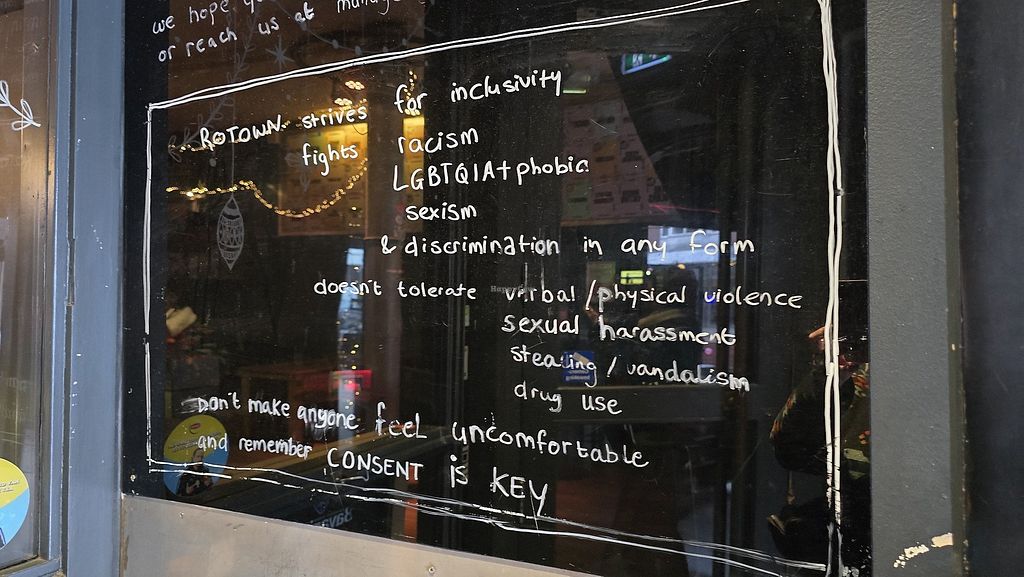 we hope
or reach us at
ROTOWN strives for inclusivity
fights racism
LGBTQIA+phobia
sexism
& discrimination in any form
doesn't tolerate verbal/physical violence
sexual harassment
stealing/vandalism
drug use
Don't make anyone feel uncomfortable
and remember CONSENT is KEY